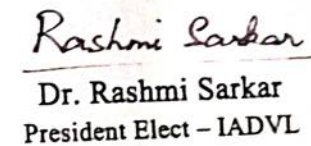 Rashmi Sarkar
Dr. Rashmi Sarkar
President Elect – IADVL